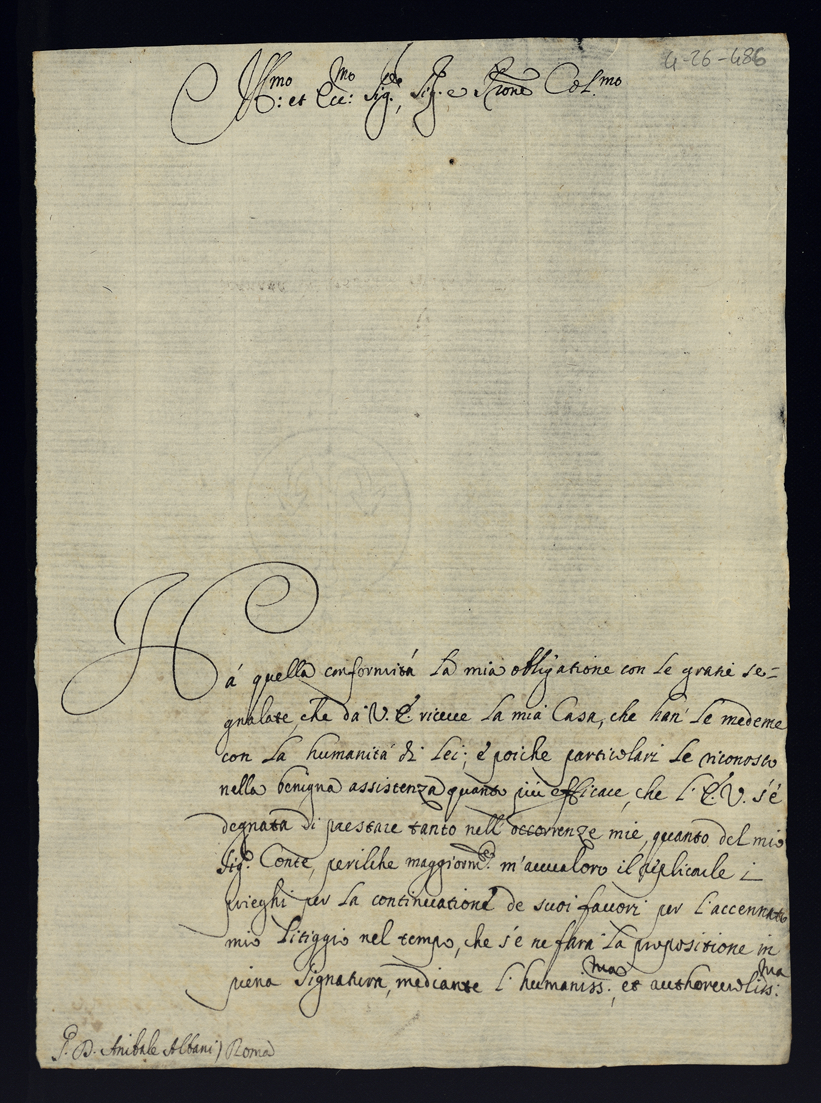 4-26-486
Ill.mo: et Ecc:mo Sig.re, Sig.e e P'rone Col.mo
Há quella conformità la mia obligatione con le gratie se=
gnalate, che da V. E. riceue la mia Casa, che han' le medeme
con la humanità di lei; e poiche particolari le riconosco
nella benigna assistenza quanto più efficace, che l'E. V. s'é
degnata di prestare tanto nell'occorrenze mie, quanto del mio
Sig.r Conte, perilche maggiorm.te m'auualoro il replicarle i
prieghi per la continuatione de suoi fauori per l'accennato
mio litiggio nel tempo, che s'e ne farà la propositione in
piena Signatura, mediante l'humaniss:ma, et authoreuoliss:ma
P. D. Anibale Albani) Roma